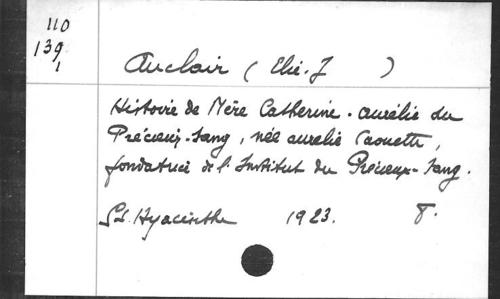 110
139
1
Auclair ( Elie-J )
Histoire de Mère Catherine. aurélie du
Précieux-Sang, née aurélie Caouette,
fondatrice de l'Institut du Précieux-Sang.
St. Hyacinthe 1923. 8.